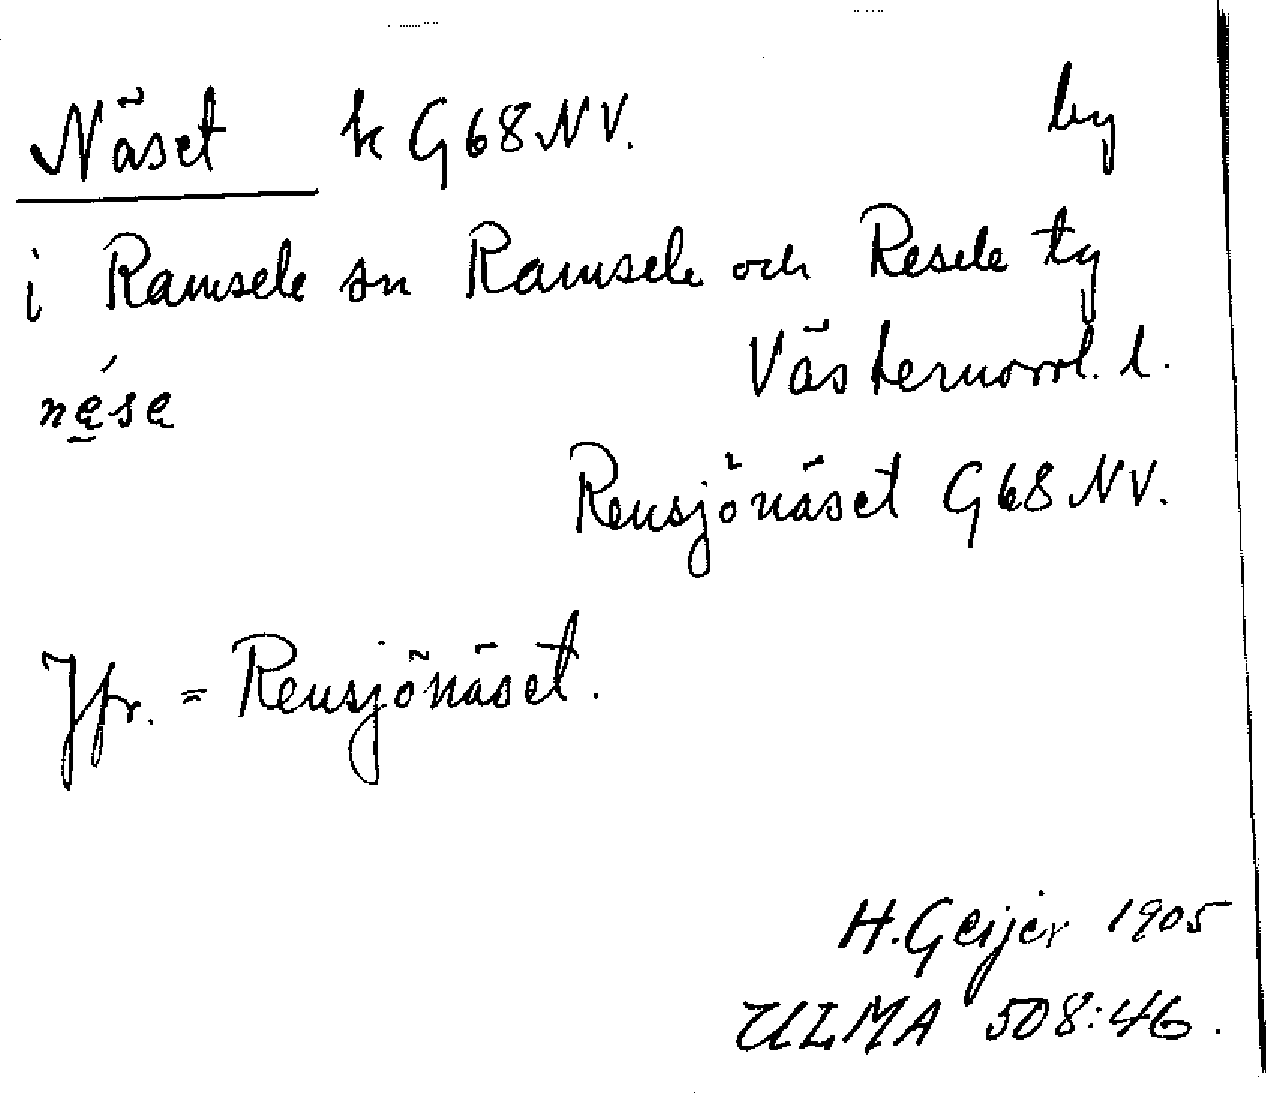 Näset k G68NV. by
i Ramsele sn Ramsele och Resele tg
Västernorrl. l.
Rensjönäset G68NV.
Jfr. = Rensjönäset.
H. Geijer 1905
ULMA 508:46.